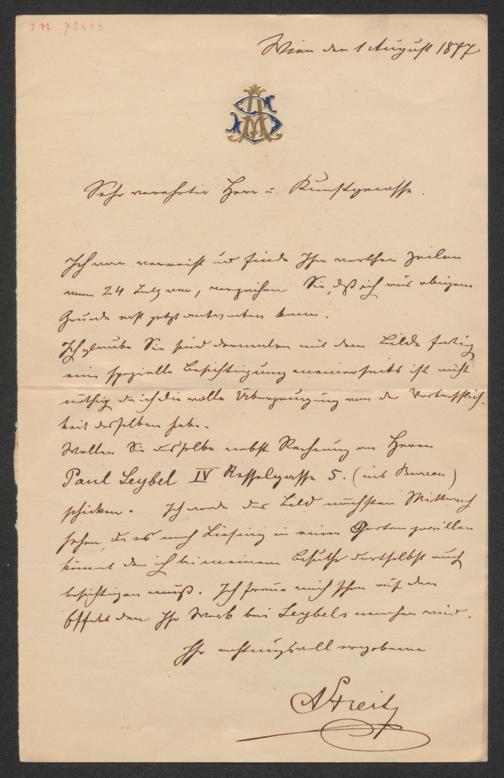 IN 72403
Wien den 1 August 1877
Sehr verehrter Herr u. Kunstgenosse.
Ich war verreist und finde Ihre werthen Zeilen
vom 24 July vor, verzeihen Sie, daß ich aus obigem
Grunde erst jetzt antworten kann.
Ich glaube Sie sind dermalen mit dem Bilde fertig
eine spezielle Besichtigung meinerseits ist nicht
nöthig da ich die volle Überzeugung von der Vortrefflich-
keit desselben habe.
Wollen Sie dasselbe nebst Rechnung an Herrn
Paul Leybel IV Resselgasse 5. (ins Bureau)
schicken. Ich werde das Bild nächsten Mittwoch
sehen, da es nach Liesing in einen Gartenpavillon
kömmt den ich bei meinem Besuche dortselbst auch
besichtigen muß. Ich freue mich schon auf den
Effekt den Ihr Werk bei Leybels machen wird.
Ihr achtungsvoll ergebener
AStreit